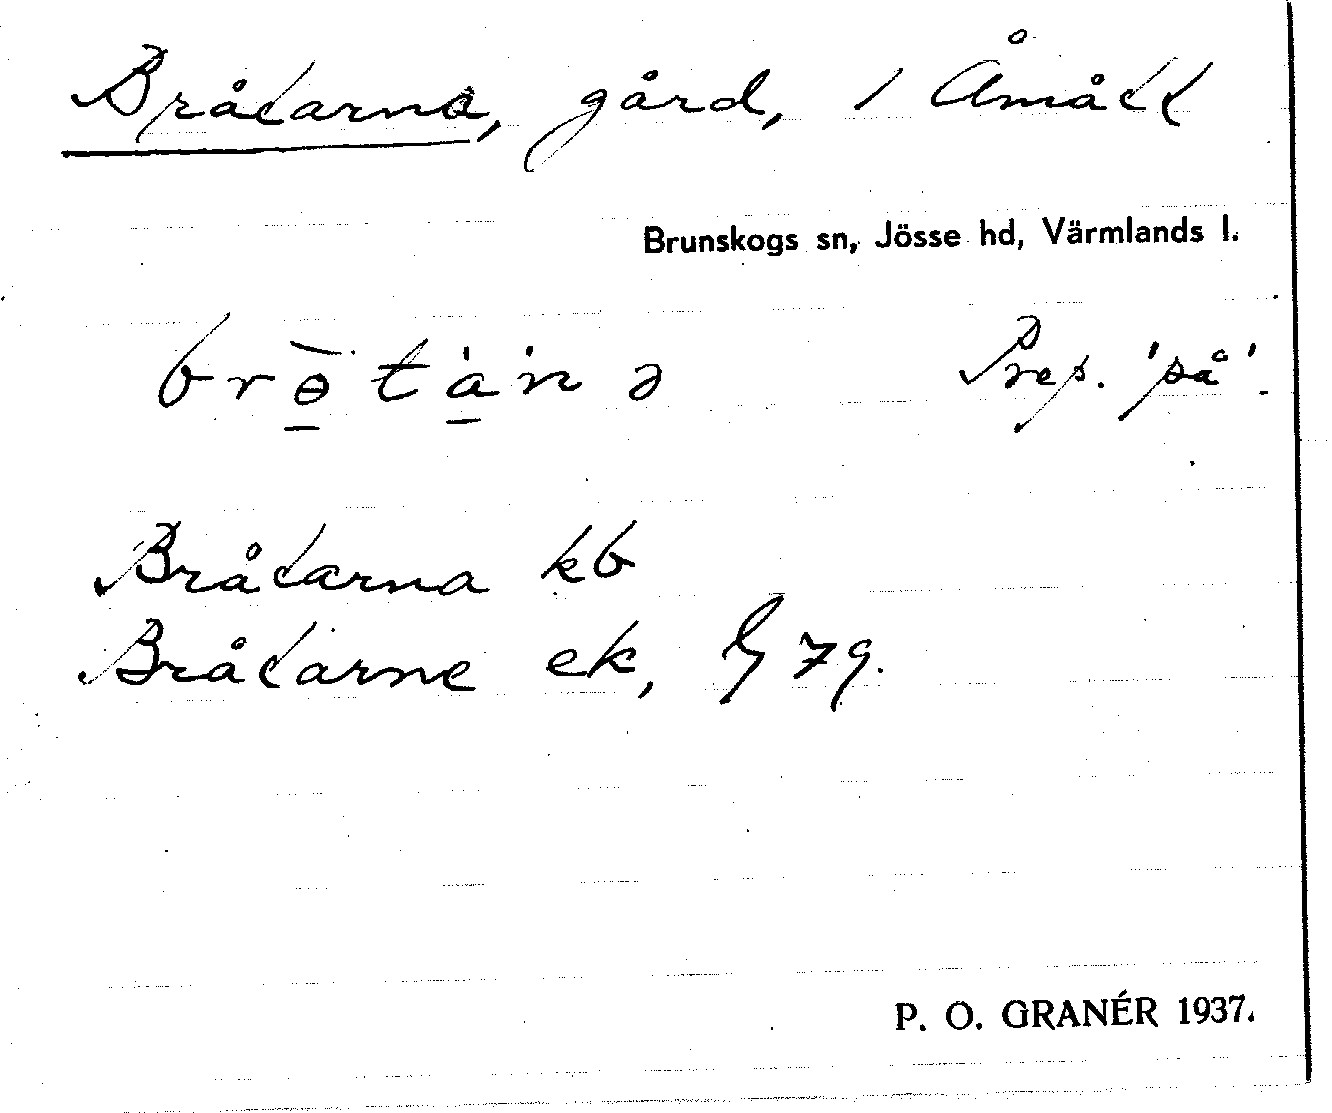 Bråtarna, gård, 1 Åmått
Brunskogs sn, Jösse hd, Värmlands l.
brɵ̠̀ta̠̍nə Prep. 'på'.
Bråtarna kb
Bråtarne ek,
P. O. GRANÉR 1937.